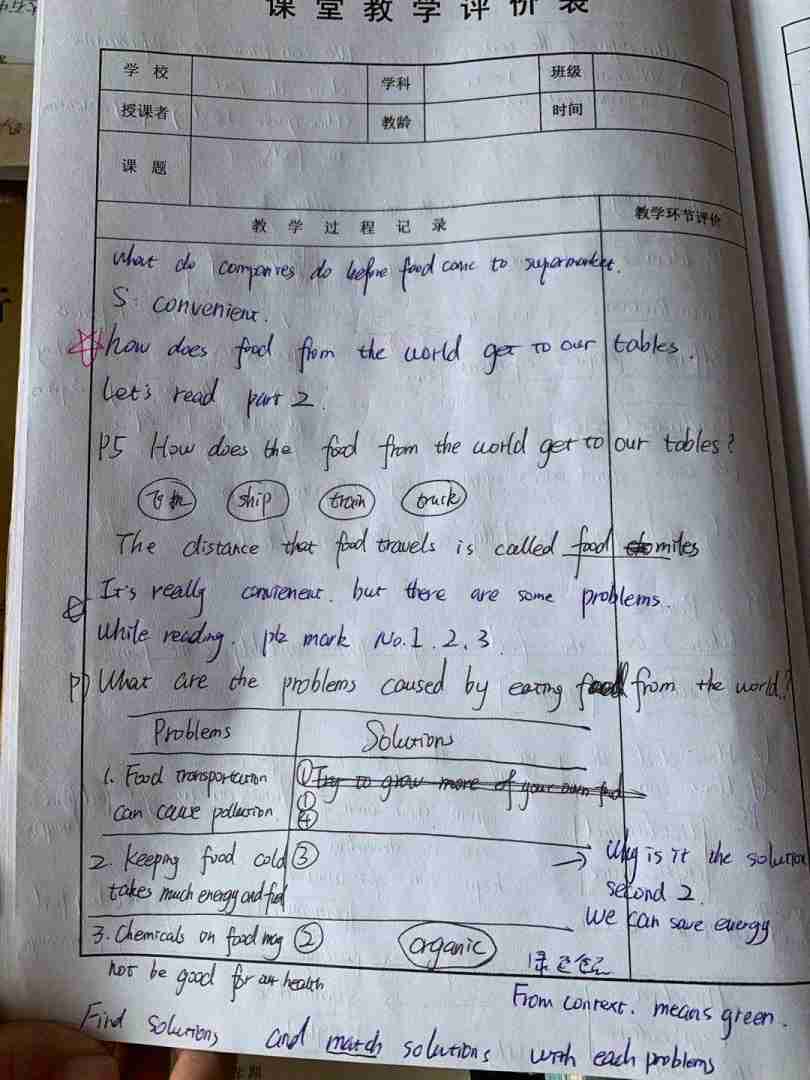 课堂教学评价表
学校 学科 班级
授课者 教龄 时间
课题
教学过程记录 教学环节评价
What do companies do before food come to supermarket.
S: convenient.
how does food from the world get to our tables.
Let's read part 2.
P5 How does the food from the world get to our tables?
飞机 ship train truck
The distance that food travels is called food miles
It's really convenient. but there are some problems.
While reading. plz mark No.1.2.3
What are the problems caused by eating food from the world?
Problems Solutions
1. Food transportation ① Try to grow more of your own food
can cause pollution ① ④
2. Keeping food cold ③ → Why is it the solution
takes much energy and fuel second 2.
we can save energy
3. Chemicals on food may ② organic 绿色食品
not be good for our health
From context. means green.
Find solutions and match solutions with each problems